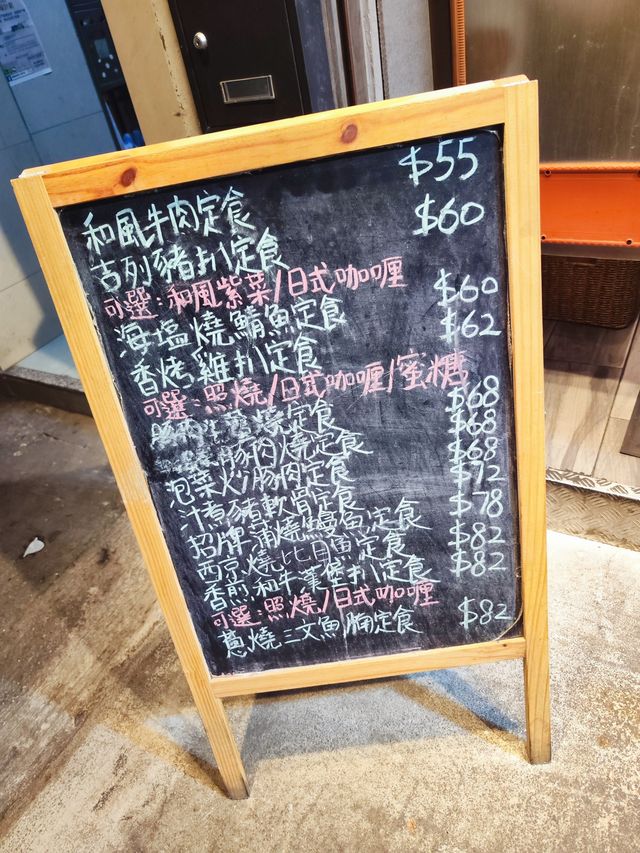 和風牛肉定食 $55
吉列豬扒定食 $60
可選：和風紫菜/日式咖喱
海塩燒鯖魚定食 $60
香烤雞扒定食 $62
可選：照燒/日式咖喱/蜜糖
燒定食 $68
豚肉燒定食 $68
泡菜炒豚肉定食 $68
汁煮豬軟骨定食 $72
招牌蒲燒鰻魚定食 $78
西京燒比目魚定食 $82
香煎和牛漢堡扒定食 $82
可選：照燒/日式咖喱
蔥燒三文魚腩定食 $82